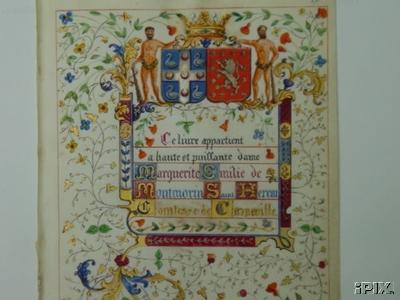 Ce livre appartient
a haute et puissante dame
Marguerite Emilie de
Montmorin Saint Herem
Comtesse de
iPIX